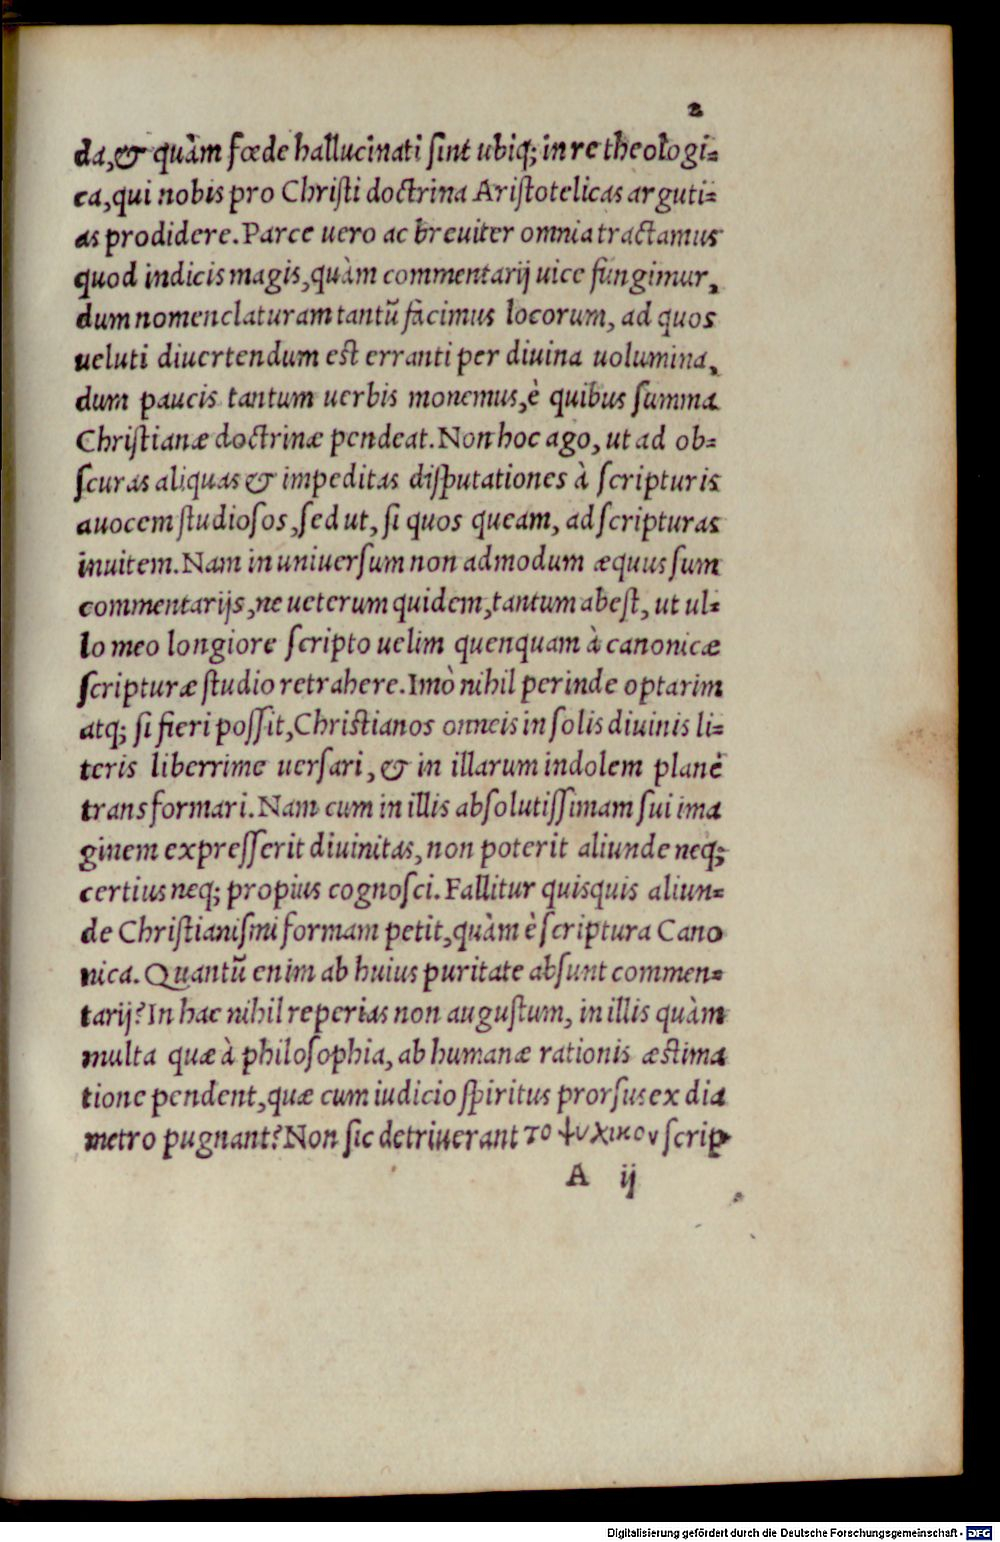 2
da, & quàm fœde hallucinati ſint ubiq; in re theologi-
ca, qui nobis pro Chriſti doctrina Ariſtotelicas arguti-
as prodidere. Parce uero ac breuiter omnia tractamus
quod indicis magis, quàm commentarij uice fungimur,
dum nomenclaturam tantũ facimus locorum, ad quos
ueluti diuertendum eſt erranti per diuina uolumina,
dum paucis tantum uerbis monemus, è quibus ſumma
Chriſtianæ doctrinæ pendeat. Non hoc ago, ut ad ob-
ſcuras aliquas & impeditas diſputationes à ſcripturis
auocem ſtudioſos, ſed ut, ſi quos queam, ad ſcripturas
inuitem. Nam in uniuerſum non admodum æquus ſum
commentarijs, ne ueterum quidem, tantum abeſt, ut ul-
lo meo longiore ſcripto uelim quenquam à canonicæ
ſcripturæ ſtudio retrahere. Imò nihil perinde optarim
atq; ſi fieri poſſit, Chriſtianos omneis in ſolis diuinis li-
teris liberrime uerſari, & in illarum indolem planè
transformari. Nam cum in illis abſolutiſſimam ſui ima
ginem expreſſerit diuinitas, non poterit aliunde neq;
certius neq; propius cognoſci. Fallitur quisquis aliun-
de Chriſtianiſmi formam petit, quàm è ſcriptura Cano
nica. Quantũ enim ab huius puritate abſunt commen-
tarij? In hac nihil reperias non auguſtum, in illis quàm
multa quæ à philoſophia, ab humanæ rationis æſtima
tione pendent, quæ cum iudicio ſpiritus prorſus ex dia
metro pugnant? Non ſic detriuerant το ψυχικον ſcrip
A ij
Digitalisierung gefördert durch die Deutsche Forschungsgemeinschaft - DFG